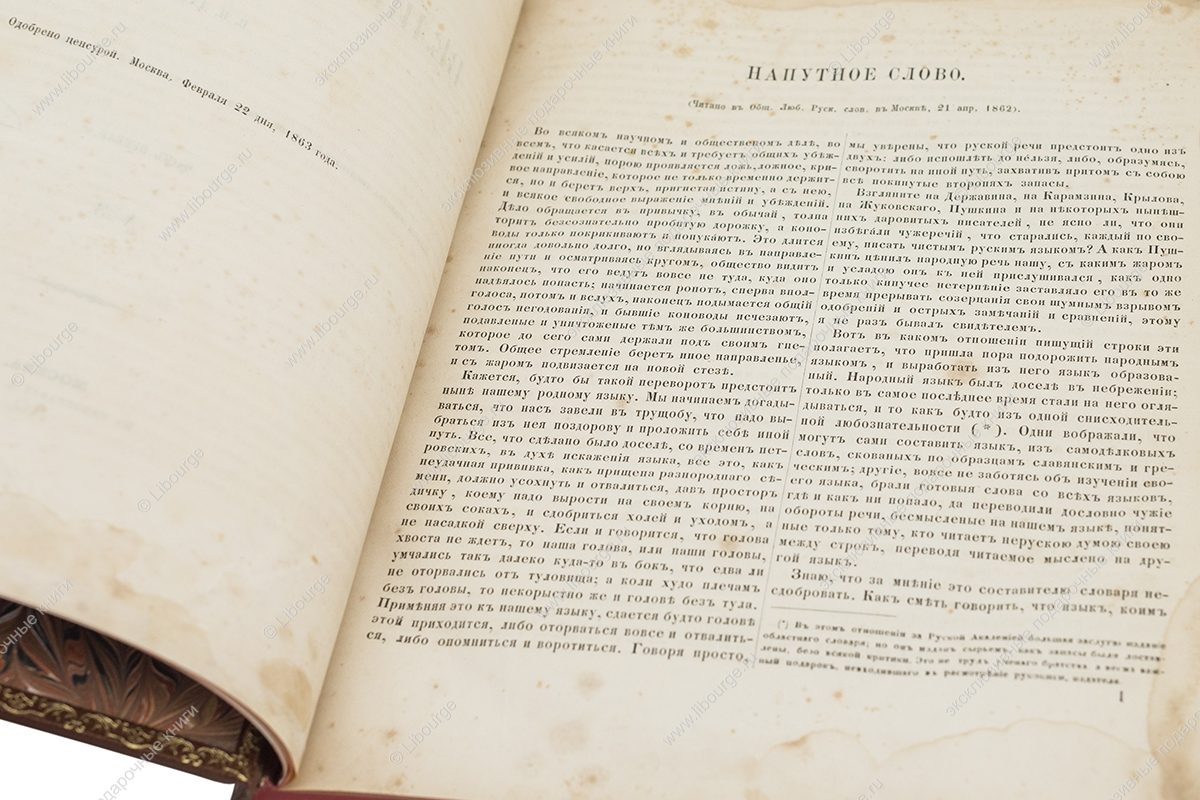 Одобрено ценсурой. Москва, Февраля 22 дня, 1863 года.
НАПУТНОЕ СЛОВО.
(Читано въ Общ. Люб. Руск. слов. въ Москвѣ, 21 апр. 1862).
Во всякомъ научномъ и общественомъ дѣлѣ, во
всемъ, что касается всѣхъ и требуетъ общихъ убѣж-
деній и усилій, порою проявляется ложь, ложное, кри-
вое направленіе, которое не только временно держит-
ся, но и беретъ верхъ, пригнетая истину, а съ нею,
и всякое свободное выраженіе мнѣній и убѣжденій.
Дѣло обращается въ привычку, въ обычай, толпа
торитъ безсознательно пробитую дорожку, а коно-
воды только покрикиваютъ и понукаютъ. Это длится
иногда довольно долго, но вглядываясь въ направле-
ніе пути и осматриваясь кругомъ, общество видитъ
наконецъ, что его ведутъ вовсе не туда, куда оно
надѣялось попасть; начинается ропотъ, сперва впол-
голоса, потомъ и вслухъ, наконецъ подымается общій
голосъ негодованія, и бывшіе коноводы исчезаютъ,
подавленые и уничтоженые тѣмъ же большинствомъ,
которое до сего сами держали подъ своимъ гне-
томъ. Общее стремленіе беретъ иное направленье,
и съ жаромъ подвизается на новой стезѣ.
Кажется, будто бы такой переворотъ предстоитъ
нынѣ нашему родному языку. Мы начинаемъ догады-
ваться, что насъ завели въ трущобу, что надо вы-
браться изъ нея поздорову и проложить себѣ иной
путь. Все, что сдѣлано было доселѣ, со временъ пет-
ровскихъ, въ духѣ искаженія языка, все это, какъ
неудачная прививка, какъ прищепа разнороднаго сѣ-
мени, должно усохнуть и отвалиться, давъ просторъ
дичку, коему надо вырости на своемъ корню, на
своихъ сокахъ, и сдобриться холей и уходомъ, а
не насадкой сверху. Если и говорится, что голова
хвоста не ждетъ, то наша голова, или наши головы,
умчались такъ далеко куда-то въ бокъ, что едва ли
не оторвались отъ туловища; а коли худо плечамъ
безъ головы, то некорыстно же и головѣ безъ тула.
Примѣняя это къ нашему языку, сдается будто головѣ
этой приходится, либо оторваться вовсе и отвалить-
ся, либо опомниться и воротиться. Говоря просто,
мы увѣрены, что руской речи предстоитъ одно изъ
двухъ: либо испошлѣть до нельзя, либо, образумясь,
своротить на иной путь, захвативъ притомъ съ собою
всѣ покинутые второпяхъ запасы.
Взгляните на Державина, на Карамзина, Крылова,
на Жуковскаго, Пушкина и на нѣкоторыхъ нынѣш-
нихъ даровитыхъ писателей, не ясно ли, что они
избѣгали чужеречій, что старались, каждый по сво-
ему, писать чистымъ рускимъ языкомъ? А какъ Пуш-
кинъ цѣнилъ народную речь нашу, съ какимъ жаромъ
и усладою онъ къ ней прислушивался, какъ одно
только кипучее нетерпѣніе заставляло его въ то же
время прерывать созерцанія свои шумнымъ взрывомъ
одобреній и острыхъ замѣчаній и сравненій, этому
я не разъ бывалъ свидѣтелемъ.
Вотъ въ какомъ отношеніи пишущій строки эти
полагаетъ, что пришла пора подорожить народнымъ
языкомъ, и выработать изъ него языкъ образова-
ный. Народный языкъ былъ доселѣ въ небреженіи;
только въ самое послѣднее время стали на него огля-
дываться, и то какъ будто изъ одной снисходитель-
ной любознательности (*). Одни вображали, что
могутъ сами составить языкъ, изъ самодѣлковыхъ
словъ, скованыхъ по образцамъ славянскимъ и гре-
ческимъ; другіе, вовсе не заботясь объ изученіи сво-
его языка, брали готовыя слова со всѣхъ языковъ,
гдѣ и какъ ни попало, да переводили дословно чужіе
обороты речи, бесмысленые на нашемъ языкѣ, понят-
ные только тому, кто читаетъ нерускою думою своею
между строкъ, переводя читаемое мыслено на дру-
гой языкъ.
Знаю, что за мнѣніе это составителю словаря не-
сдобровать. Какъ смѣть говорить, что языкъ, коимъ
(*) Въ этомъ отношеніи за Руской Академіей большая заслуга: изданіе
областнаго словаря; но онъ изданъ сырьемъ, какъ запасы были достав-
лены, безо всякой критики. Это не трудъ ученаго братства а весьма важ-
ный подарокъ, невходившаго въ разсмотрѣніе рукописи, издателя.
1
© Libourge
www.libourge.ru
эксклюзивные подарочные книги